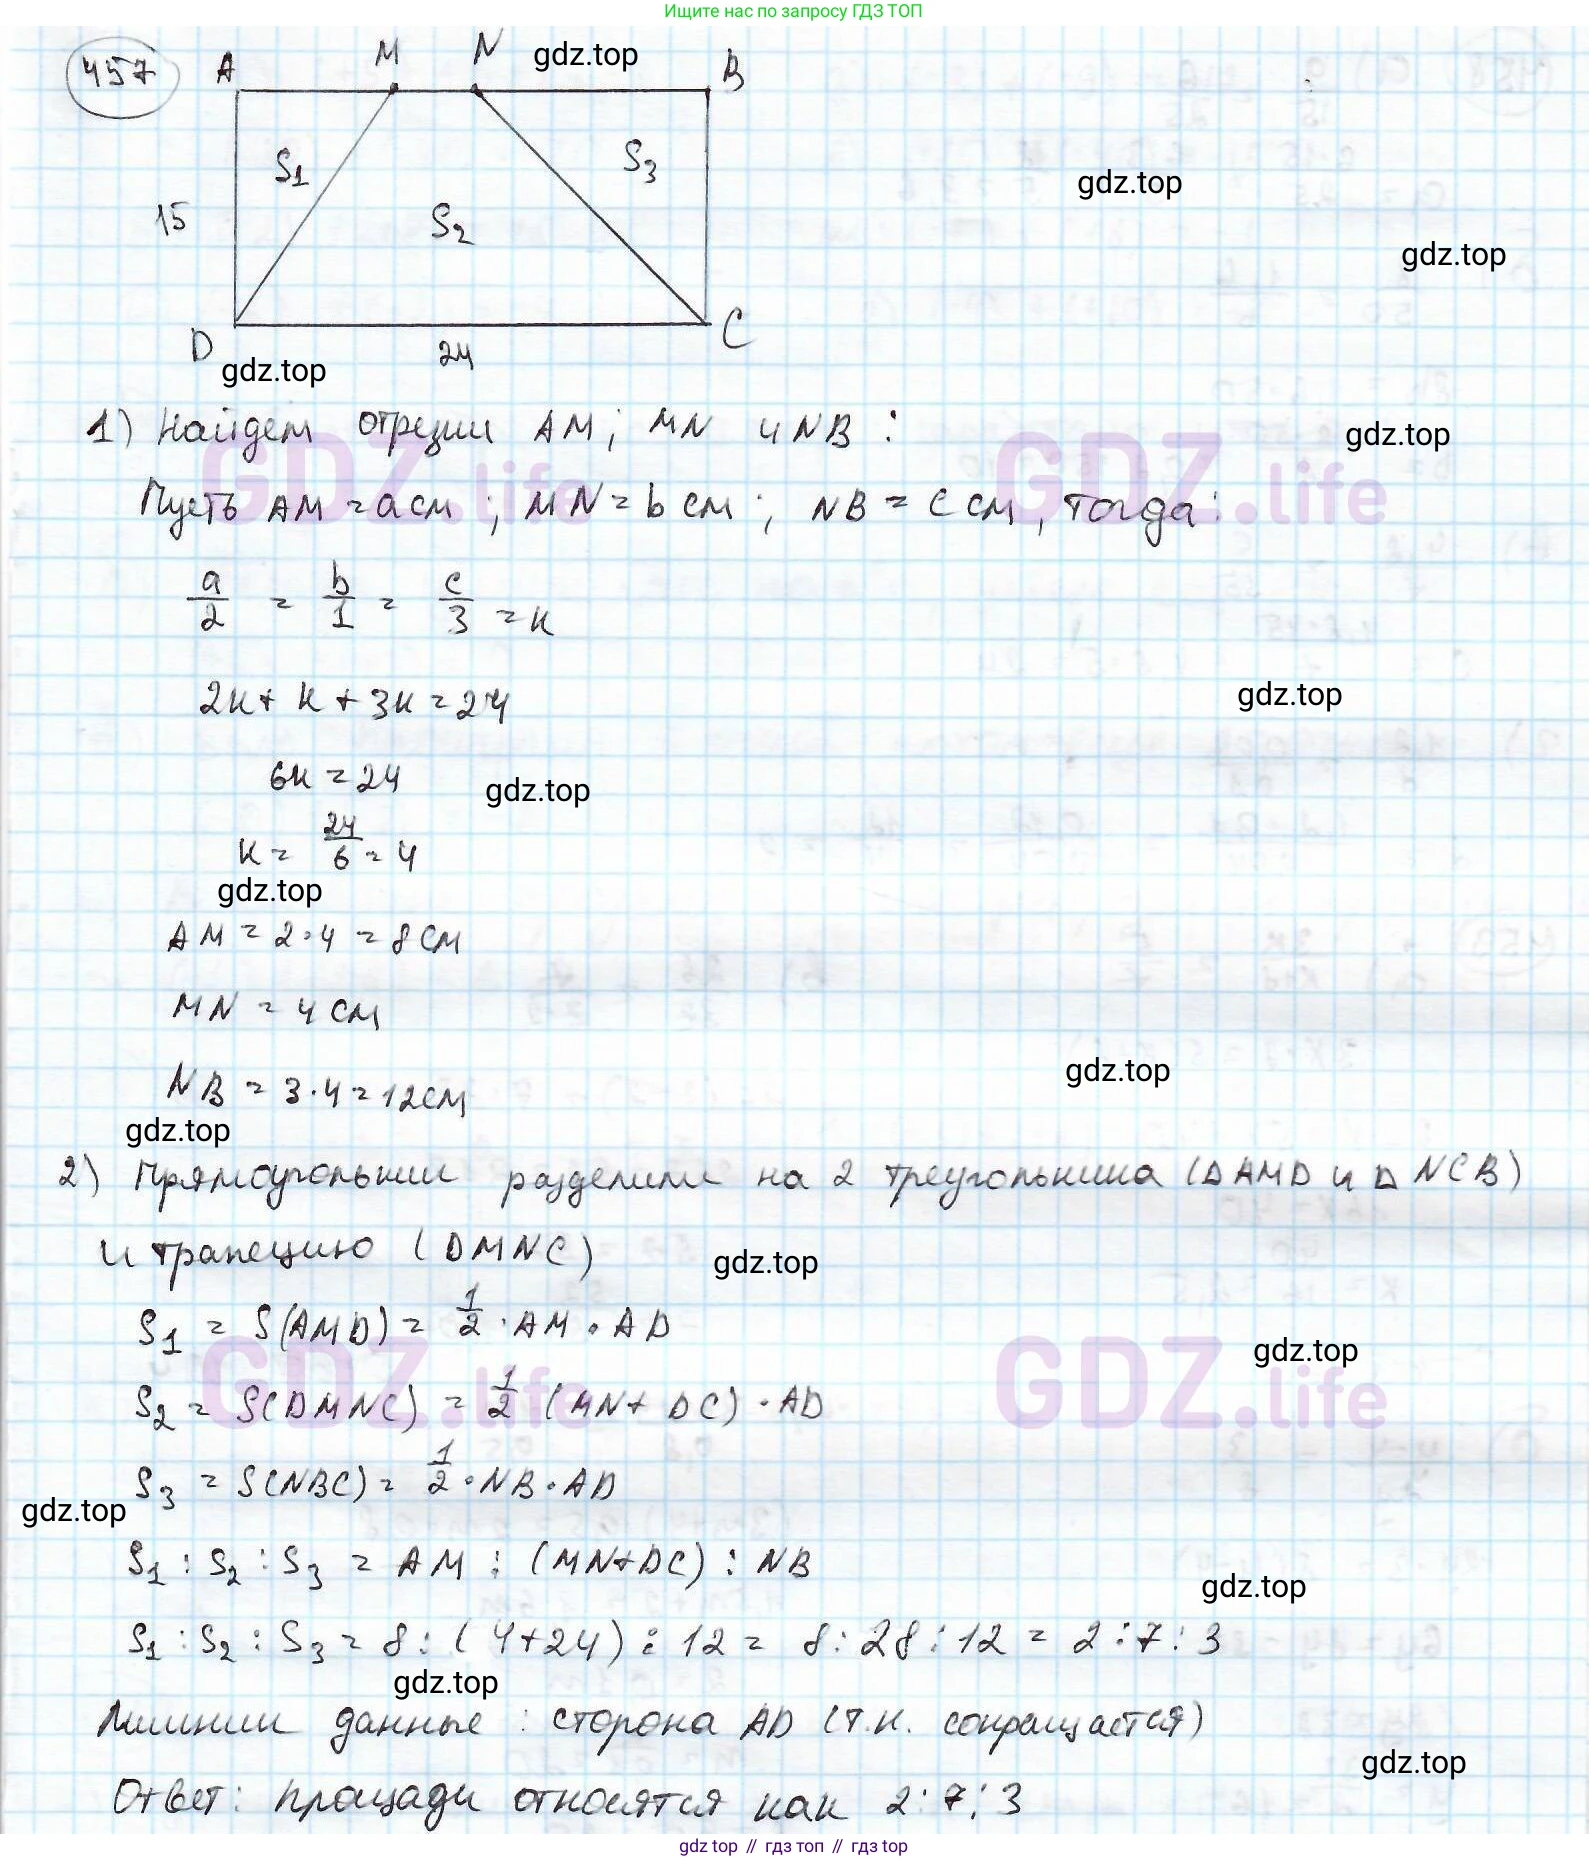 Ищите нас по запросу ГДЗ ТОП
457
A M N B
gdz.top
S1
S3
gdz.top
15
S2
gdz.top
D
24
C
gdz.top
1) Найдем отрезки AM; MN и NB:
gdz.top
GDZ.life GDZ.life
Пусть AM = a см; MN = b см; NB = c см, тогда:
a/2 = b/1 = c/3 = k
2k + k + 3k = 24
gdz.top
6k = 24
gdz.top
k = 24/6 = 4
gdz.top
AM = 2·4 = 8 см
MN = 4 см
gdz.top
NB = 3·4 = 12 см
gdz.top
2) Прямоугольник разделили на 2 треугольника (Δ AMD и Δ NCB)
и трапецию (DMNC)
gdz.top
S1 = S(AMD) = 1/2 · AM · AD
gdz.top
GDZ.life GDZ.life
S2 = S(DMNC) = 1/2 (MN + DC) · AD
S3 = S(NBC) = 1/2 · NB · AD
gdz.top
S1 : S2 : S3 = AM : (MN+DC) : NB
gdz.top
S1 : S2 : S3 = 8 : (4+24) : 12 = 8 : 28 : 12 = 2 : 7 : 3
gdz.top
Лишнии данные : сторона AD (т.к. сокращается)
gdz.top
Ответ: площади относятся как 2 : 7 : 3
gdz top // гдз топ // gdz top